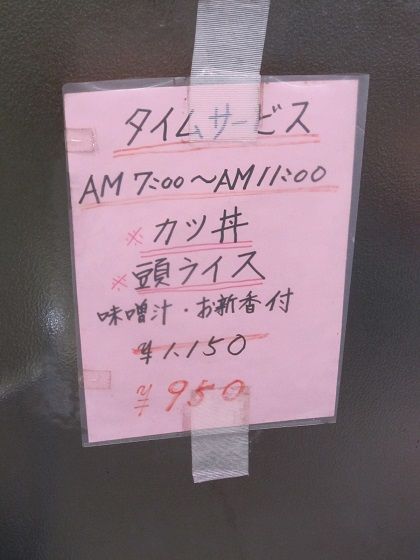 タイムサービス
AM 7:00〜AM 11:00
※カツ丼
※頭ライス
味噌汁・お新香付
¥1,150
¥950